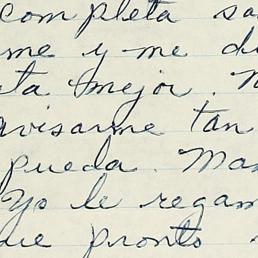 completa sa
me y me di
ta mejor. N
avisarme tan
pueda. Man
Yo le regam
ue pronto s